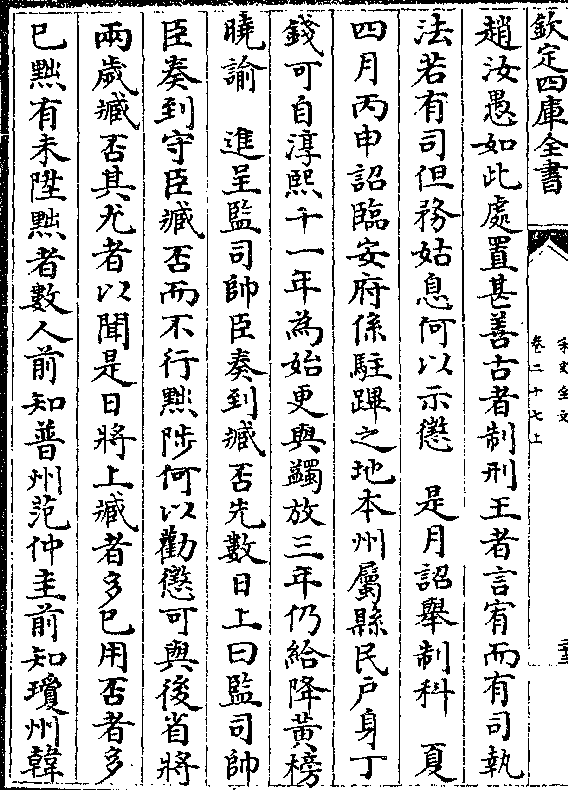 欽定四庫全書
宋史全文
卷二十七上
趙汝愚如此處置甚善古者制刑王者言宥而有司執
法若有司但務姑息何以示懲　是月詔舉制科　夏
四月丙申詔臨安府係駐蹕之地本州屬縣民戶身丁
錢可自淳熙十一年為始更與蠲放三年仍給降黃榜
曉諭　進呈監司帥臣奏到臧否先數日上曰監司帥
臣奏到守臣臧否而不行黜陟何以勸懲可與後省將
兩歲臧否其尤者以聞是日將上臧者多已用否者多
已黜有未陞黜者數人前知普州范仲圭前知瓊州韓